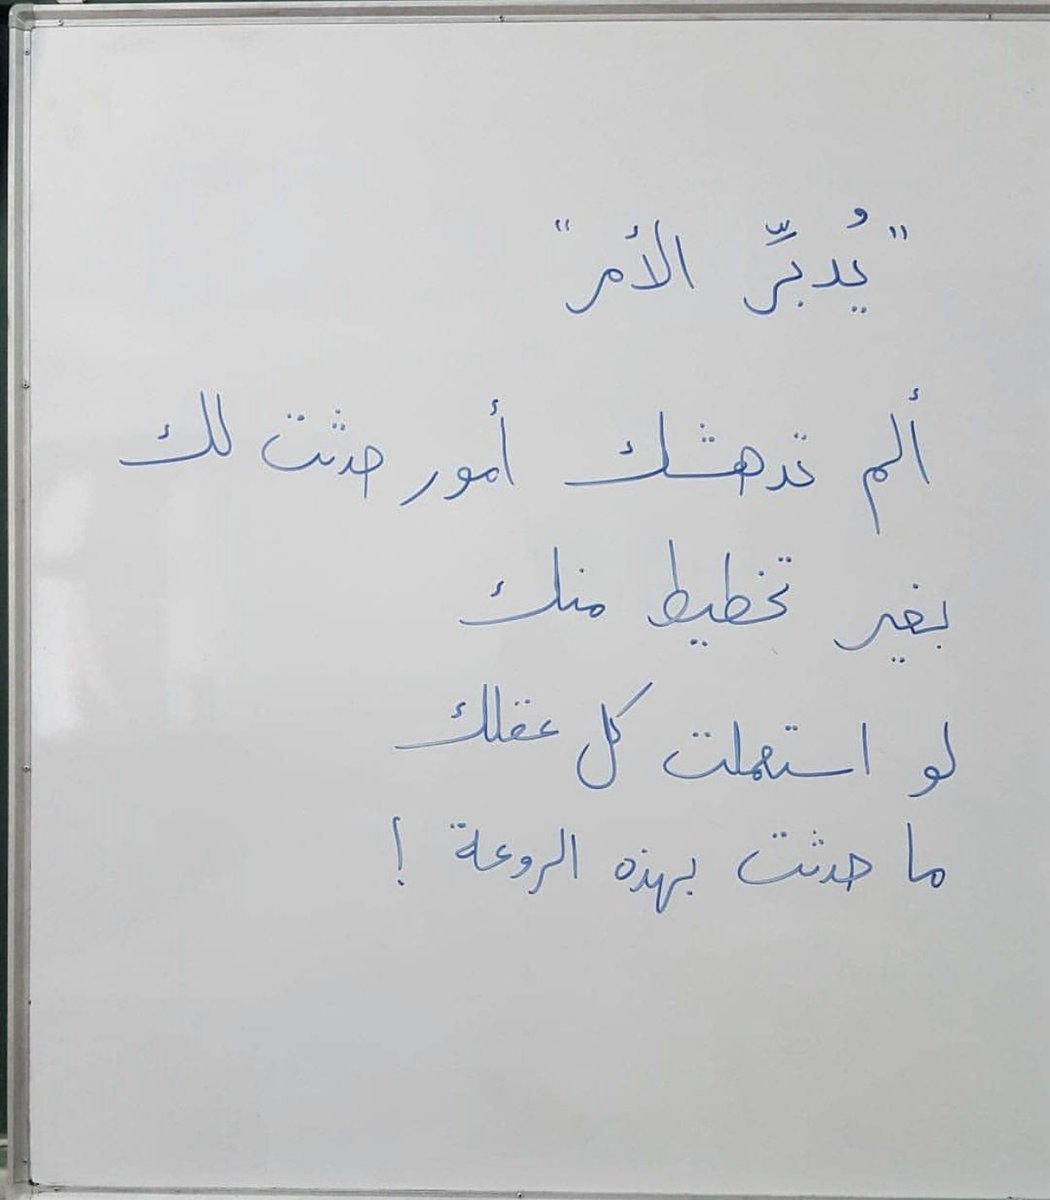 "يُدبِّرُ الأمر"
ألم تدهشك أمور حدثت لك
بغير تخطيط منك
لو استعملت كل عقلك
ما حدثت بهذه الروعة !